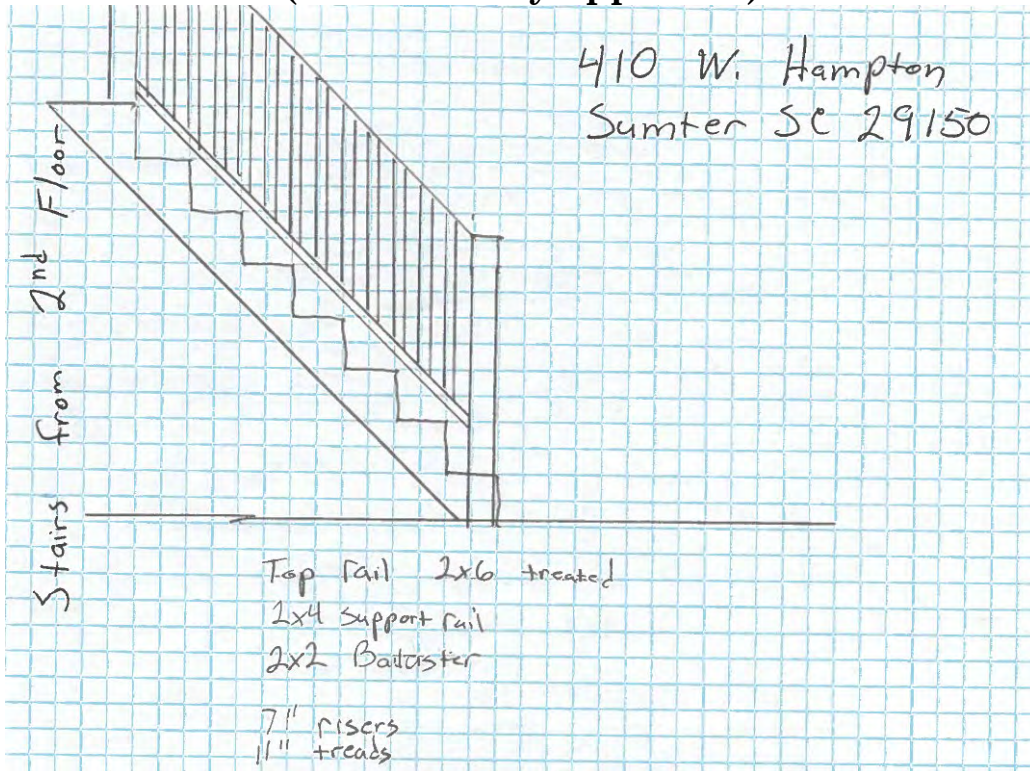 410 W. Hampton
Sumter SC 29150
Stairs from 2nd Floor
Top rail 2x6 treated
2x4 support rail
2x2 Baluster
7" risers
11" treads